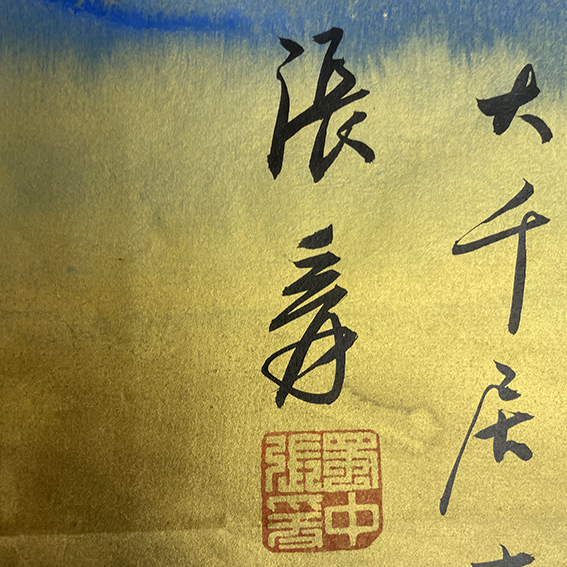 大千居
張爰
蜀中張爰